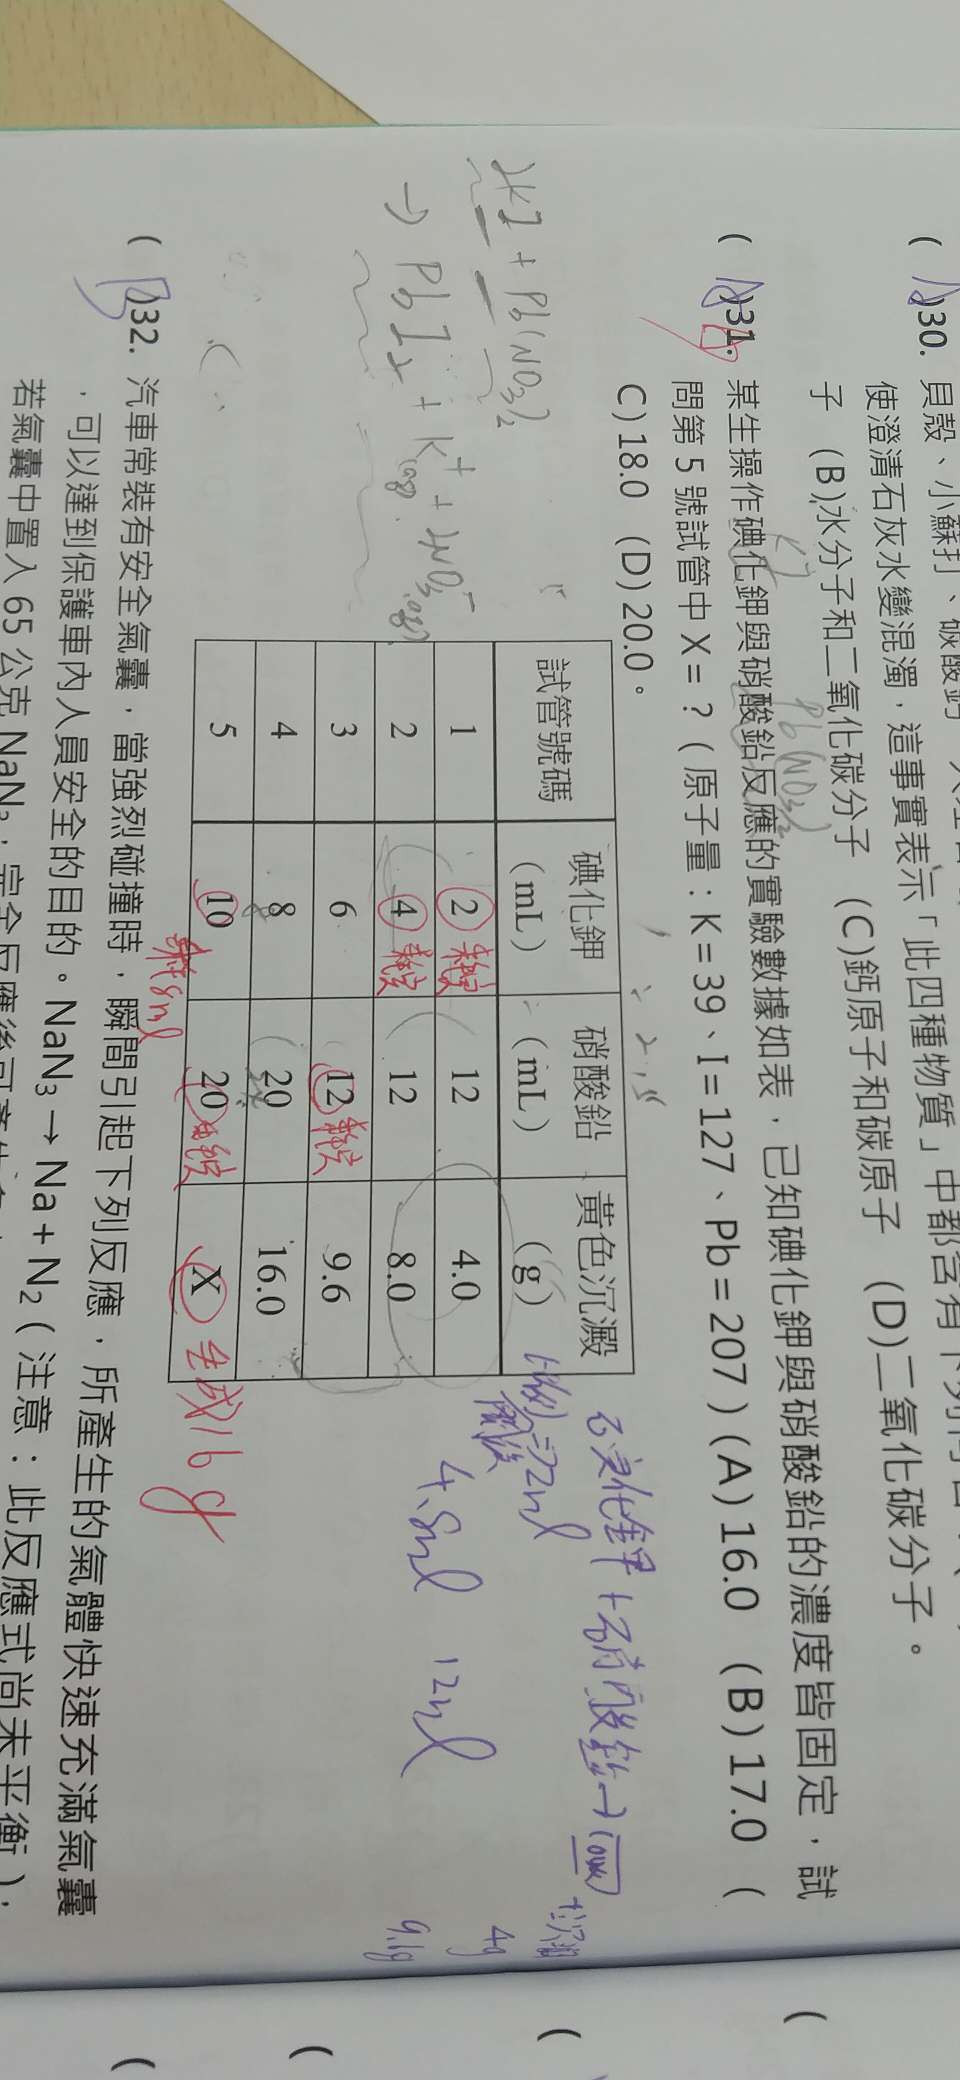 30. 貝殼、小蘇打、碳酸鈣
使澄清石灰水變混濁，這事實表示「此四種物質」中都含有下列何
子 (B)水分子和二氧化碳分子 (C)鈣原子和碳原子 (D)二氧化碳分子。
KI Pb(NO3)2
( )31. 某生操作碘化鉀與硝酸鉛反應的實驗數據如表，已知碘化鉀與硝酸鉛的濃度皆固定，試
問第 5 號試管中 X = ？( 原子量：K = 39、I = 127、Pb = 207 ) (A) 16.0 (B) 17.0 (
C) 18.0 (D) 20.0。
KI + Pb(NO3)2
→ PbI2 + K+(aq) + NO3-(aq)
試管號碼 碘化鉀 (mL) 硝酸鉛 (mL) 黃色沉澱 (g)
1 2 12 4.0
2 4 12 8.0
3 6 12 9.6
4 8 20 16.0
5 10 20 X
生成16g
剩8ml
碘化鉀+硝酸鉛→
2ml
4g
4.8ml 12ml
9.6g
( B )32. 汽車常裝有安全氣囊，當強烈碰撞時，瞬間引起下列反應，所產生的氣體快速充滿氣囊
，可以達到保護車內人員安全的目的。NaN3 → Na + N2 ( 注意：此反應式尚未平衡 )，
若氣囊中置入 65 公克 NaN3，完全反應後可產生